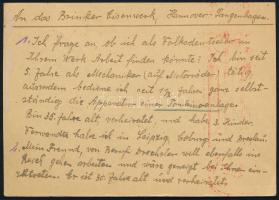 An das Brinker Eisenwerk, Hannover-Langenhagen.
1. Ich frage an ob ich als Volksdeutscher in
Ihrem Werk Arbeit finden könnte! Ich bin seit
5 Jahre als Mechaniker (auf Motorräder) tätig
ausserdem bediene ich seit 1½ Jahre ganz selbst-
ständig die Apparatur einer Tonkinoanlage.
Bin 35 Jahre alt, verheiratet, und habe 3 Kinder.
Verwandte habe ich in Leipzig, Coburg und Breslau.
2. Mein Freund, von Beruf Drechsler will ebenfalls im
Reich gehen arbeiten und wäre geneigt bei Ihnen ein-
zutreten. Er ist 30 Jahre alt und verheiratet.